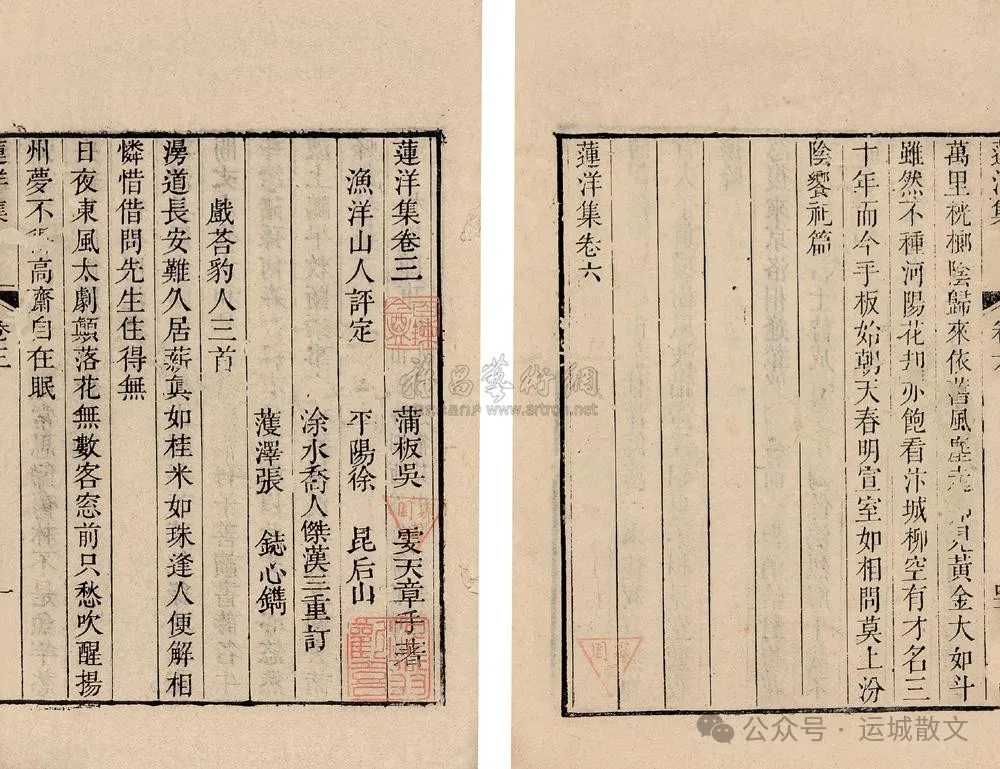 蓮洋集卷三
漁洋山人評定
蒲板吳 雯天章手著
平陽徐 昆后山
涂水喬人傑漢三重訂
濩澤張 鋕心鐫
戲荅豹人三首
澷道長安難久居薪真如桂米如珠逢人便解相
憐惜借問先生住得無
日夜東風太劇顛落花無數客窓前只愁吹醒揚
州夢不 高齋自在眠
蓮洋集
卷三
一
蓮洋集
萬里桄榔陰歸來依舊風塵 黃金大如斗
雖然不種河陽花却亦飽看汴城柳空有才名三
十年而今手板始朝天春明宣室如相問莫上汾
陰饗祉篇
蓮洋集卷六
雅昌藝術網
www.artron.net
公众号·运城散文